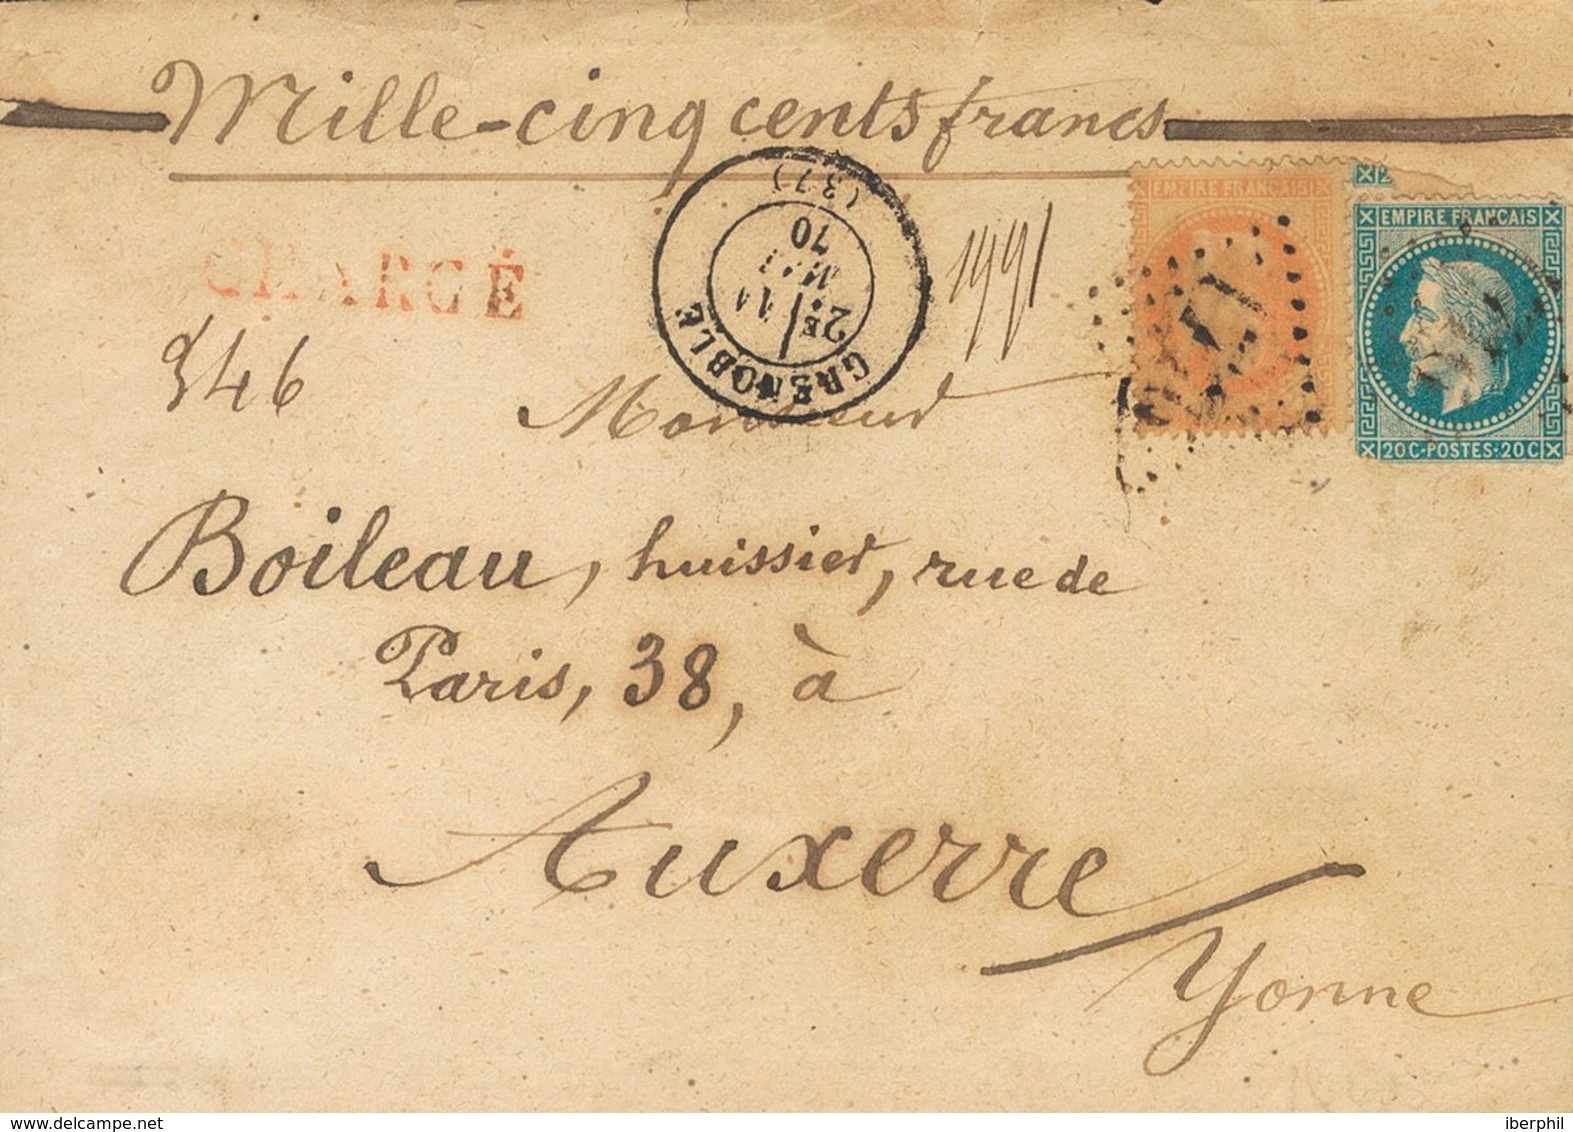 Mille-cinq cents francs
CHARGÉ
GRENOBLE
(37)
2E
11
MAI
70
1991
546
EMPIRE FRANÇAIS
EMPIRE FRANCAIS
20C·POSTES·20C
Monsieur
Boileau, huissier, rue de
Paris, 38, à
Auxerre
Yonne
delcampe.net
iberphil